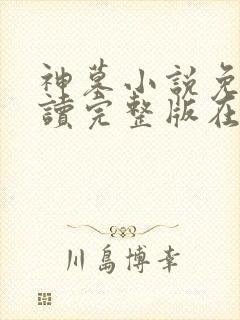 神墓小說免
讀完整版在
川島博幸